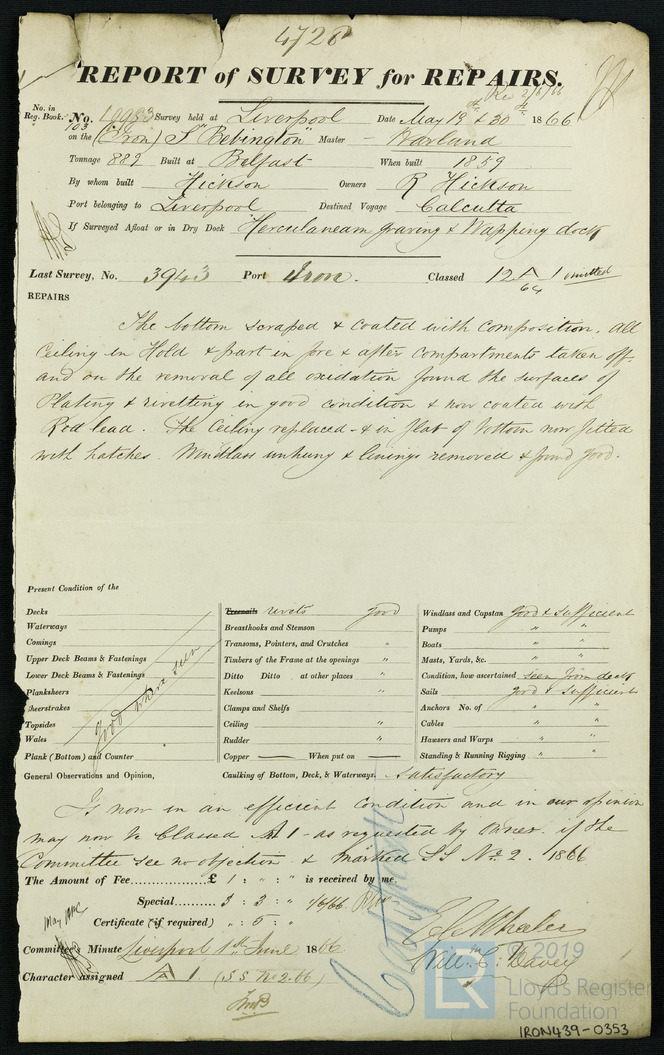 4728
REPORT of SURVEY for REPAIRS.
Rec 2/6/66
No. in Reg. Book. No. 10993 Survey held at Liverpool Date May 19th & 30th 1866
103 on the (Iron) S "Bebington" Master Harland
Tonnage 882 Built at Belfast When built 1859
By whom built Hickson Owners R Hickson
Port belonging to Liverpool Destined Voyage Calcutta
If Surveyed Afloat or in Dry Dock Herculaneam graving & Wapping docks
Last Survey, No. 3943 Port Iron. Classed 12 A 1 omitted
64
REPAIRS
The bottom scraped & coated with composition. All
Ceiling in Hold & part in fore & after compartments taken off-
and on the removal of all oxidation found the surfaces of
Plating & rivetting in good condition & now coated with
Red lead. The Ceiling replaced - & in flat of bottom now fitted
with hatches. Windlass unhung & linings removed & found good.
Present Condition of the
Decks
Waterways
Comings
Upper Deck Beams & Fastenings
Lower Deck Beams & Fastenings
Planksheers
Sheerstrakes
Topsides
Wales
Plank (Bottom) and Counter
good where seen
Treenails rivets good
Breasthooks and Stemson
Transoms, Pointers, and Crutches "
Timbers of the Frame at the openings "
Ditto Ditto at other places "
Keelsons "
Clamps and Shelfs
Ceiling "
Rudder "
Copper — When put on —
Windlass and Capstan good & sufficient
Pumps " "
Boats " "
Masts, Yards, &c. " "
Condition, how ascertained seen from deck
Sails good & sufficient
Anchors No. of " "
Cables " "
Hawsers and Warps " "
Standing & Running Rigging " "
General Observations and Opinion, Caulking of Bottom, Deck, & Waterways. Satisfactory
Is now in an efficient condition and in our opinion
may now be Classed A 1 - as requested by Owner. if the
Committee see no objection & marked SS No. 2. 1866
The Amount of Fee............... £ 1 : " : " is received by me,
Special............ 3 : 3 : " 1/6/66
Certificate (if required) " : 5 : "
Committee Minute Liverpool 1st June 1866
Character assigned A 1 (S S No 2. 66)
E C Wheeler
Willm. C. Davey
© 2019
LR
Lloyd's Register
Foundation
IRON439-0353